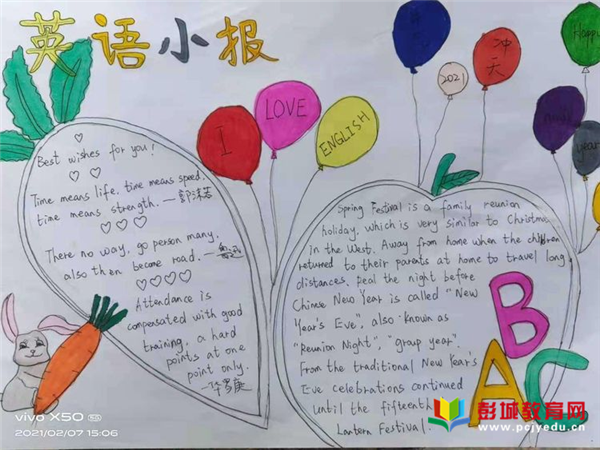 英语小报
I
LOVE
ENGLISH
冲
天
2021
Happy
new
year
Best wishes for you!
Time means life, time means speed,
time means strength. — 郭沫若
There no way, go person many,
also then become road. — 鲁迅
Attendance is
compensated with good
training, a hard
points at one
point only.
Spring Festival is a family reunion
holiday, which is very similar to Christmas
in the West. Away from home when the children
returned to their parents at home to travel long
distances. the night before
Chinese New Year is called "New
Year's Eve", also known as
"Reunion Night", "group year".
From the traditional New Year's
Eve celebrations continued
until the fifteenth
Lantern Festival.
B
A C
vivo X50 5G
2021/02/07 15:06
彭城教育网
www.pcjyedu.cn